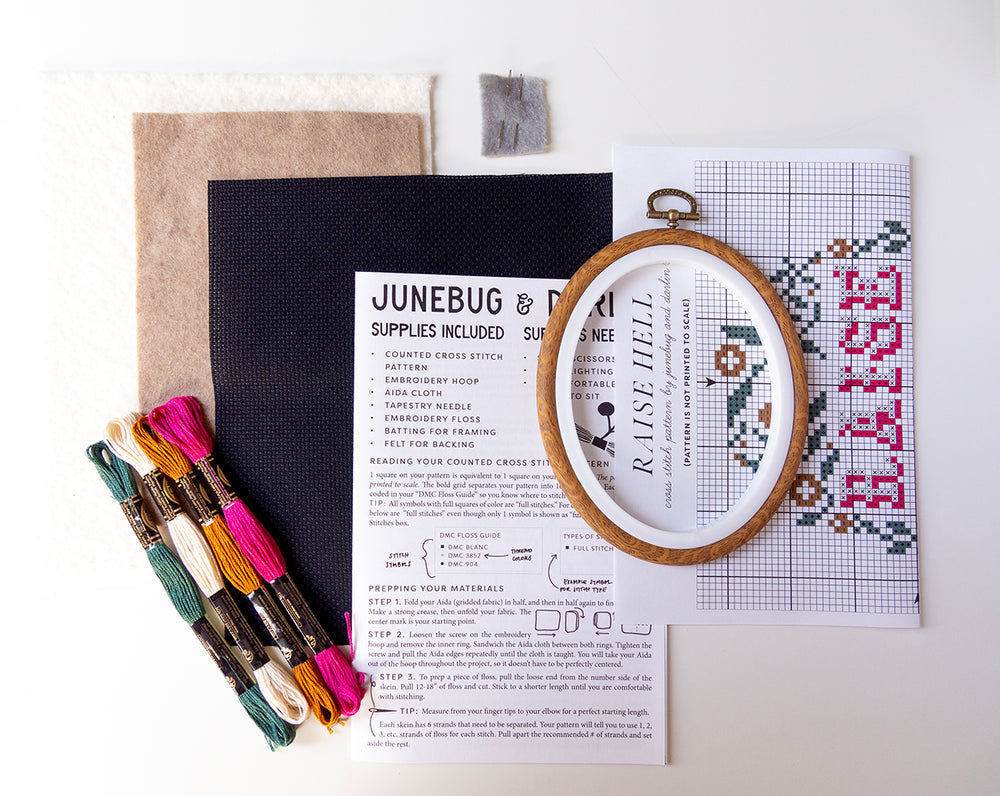 JUNEBUG &
SUPPLIES INCLUDED
• COUNTED CROSS STITCH
PATTERN
• EMBROIDERY HOOP
• AIDA CLOTH
• TAPESTRY NEEDLE
• EMBROIDERY FLOSS
• BATTING FOR FRAMING
• FELT FOR BACKING
SCISSORS
TO SIT
READING YOUR COUNTED CROSS
1 square on your pattern is equivalent to 1 square on
printed to scale. The bold grid separates your pattern into
coded in your "DMC Floss Guide" so you know where to stitch
TIP: All symbols with full squares of color are "full stitches." For
below are "full stitches" even though only 1 symbol is shown as
Stitches box.
DMC FLOSS GUIDE
■ DMC BLANC
- DMC 3852
■ DMC 904
STITCH
SYMBOLS
THREAD
COLORS
TYPES OF
■ FULL STITCH
EXAMPLE SYMBOL
FOR STITCH TYPE
PREPPING YOUR MATERIALS
STEP 1. Fold your Aida (gridded fabric) in half, and then in half again to
Make a strong crease, then unfold your fabric. The
center mark is your starting point.
STEP 2. Loosen the screw on the embroidery
hoop and remove the inner ring. Sandwich the Aida cloth between both rings. Tighten the
screw and pull the Aida edges repeatedly until the cloth is taught. You will take your Aida
out of the hoop throughout the project, so it doesn't have to be perfectly centered.
STEP 3. To prep a piece of floss, pull the loose end from the number side of the
skein. Pull 12-18" of floss and cut. Stick to a shorter length until you are comfortable
with stitching.
TIP: Measure from your finger tips to your elbow for a perfect starting length.
Each skein has 6 strands that need to be separated. Your pattern will tell you to use 1, 2,
3, etc. strands of floss for each stitch. Pull apart the recommended # of strands and set
aside the rest.
RAISE HELL
cross stitch pattern by junebug and darlin
(PATTERN IS NOT PRINTED TO SCALE)
RAISE